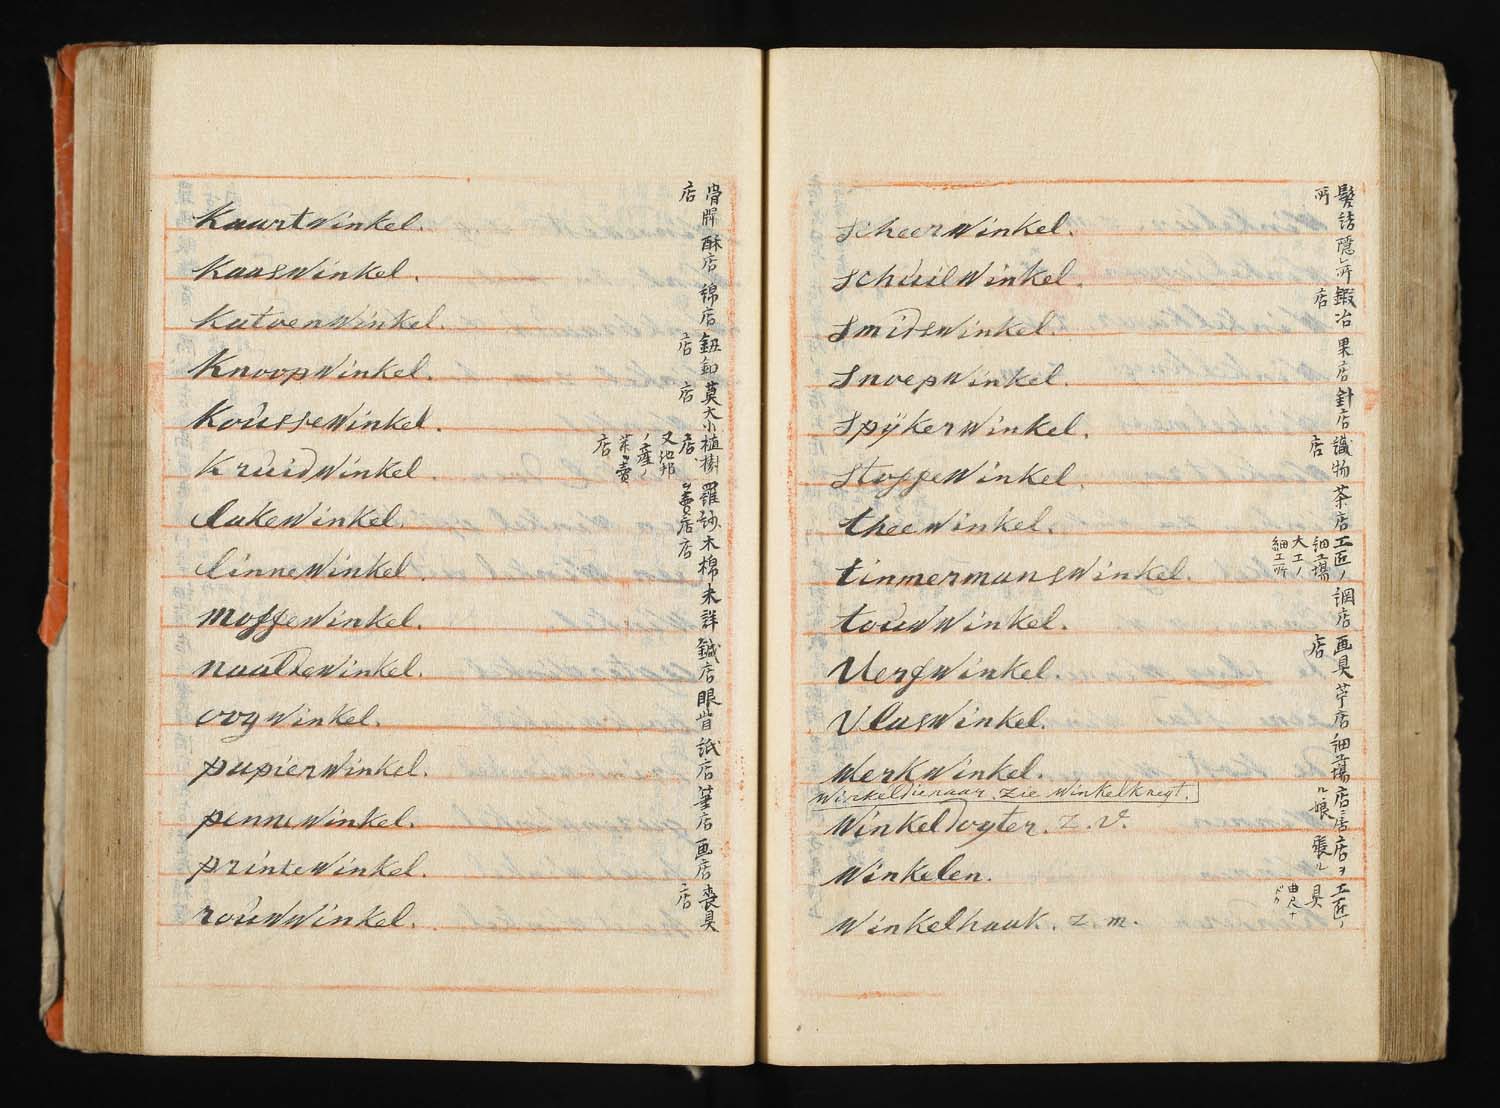 kaartWinkel. 骨牌店
kaasWinkel. 酥店
katoenWinkel. 綿店
knoopWinkel. 鈕釦店
kousseWinkel. 莫大小店
kruidWinkel. 植樹店 又他邦ノ産 賣店
lakeWinkel. 羅紗賣店
linneWinkel. 木棉店
moffeWinkel. 未詳
naaldeWinkel. 鍼店
oogWinkel. 眼眥
papierWinkel. 紙店
penneWinkel. 筆店
printeWinkel. 画店
rouwWinkel. 喪具店
scheerWinkel. 髮結所
schuilWinkel. 隱レ所
smidsWinkel. 鍛冶店
snoepWinkel. 果店
spÿkerWinkel. 針店
stoffeWinkel. 織物店
theeWinkel. 茶店
timmermansWinkel. 工匠ノ細工場 大工ノ細工所
touwWinkel. 網店
VerfWinkel. 画具店
VlasWinkel. 苧店
WerkWinkel. 細工場
Winkeldienaar. zie Winkelknegt.
Winkeldogter. z. v. 店ニ居ル娘
Winkelen. 店ヲ張ル
Winkelhaak. z. m. 工匠ノ具 曲尺ナドカ